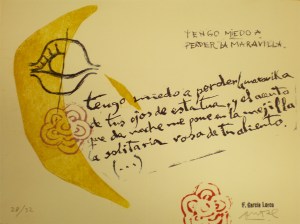 TENGO MIEDO A
PERDER LA MARAVILLA.
tengo miedo a perder la maravilla
de tus ojos de estatua, y el acento
que de noche me pone en la mejilla
la solitaria rosa de tu aliento.
(...)
F. García Lorca